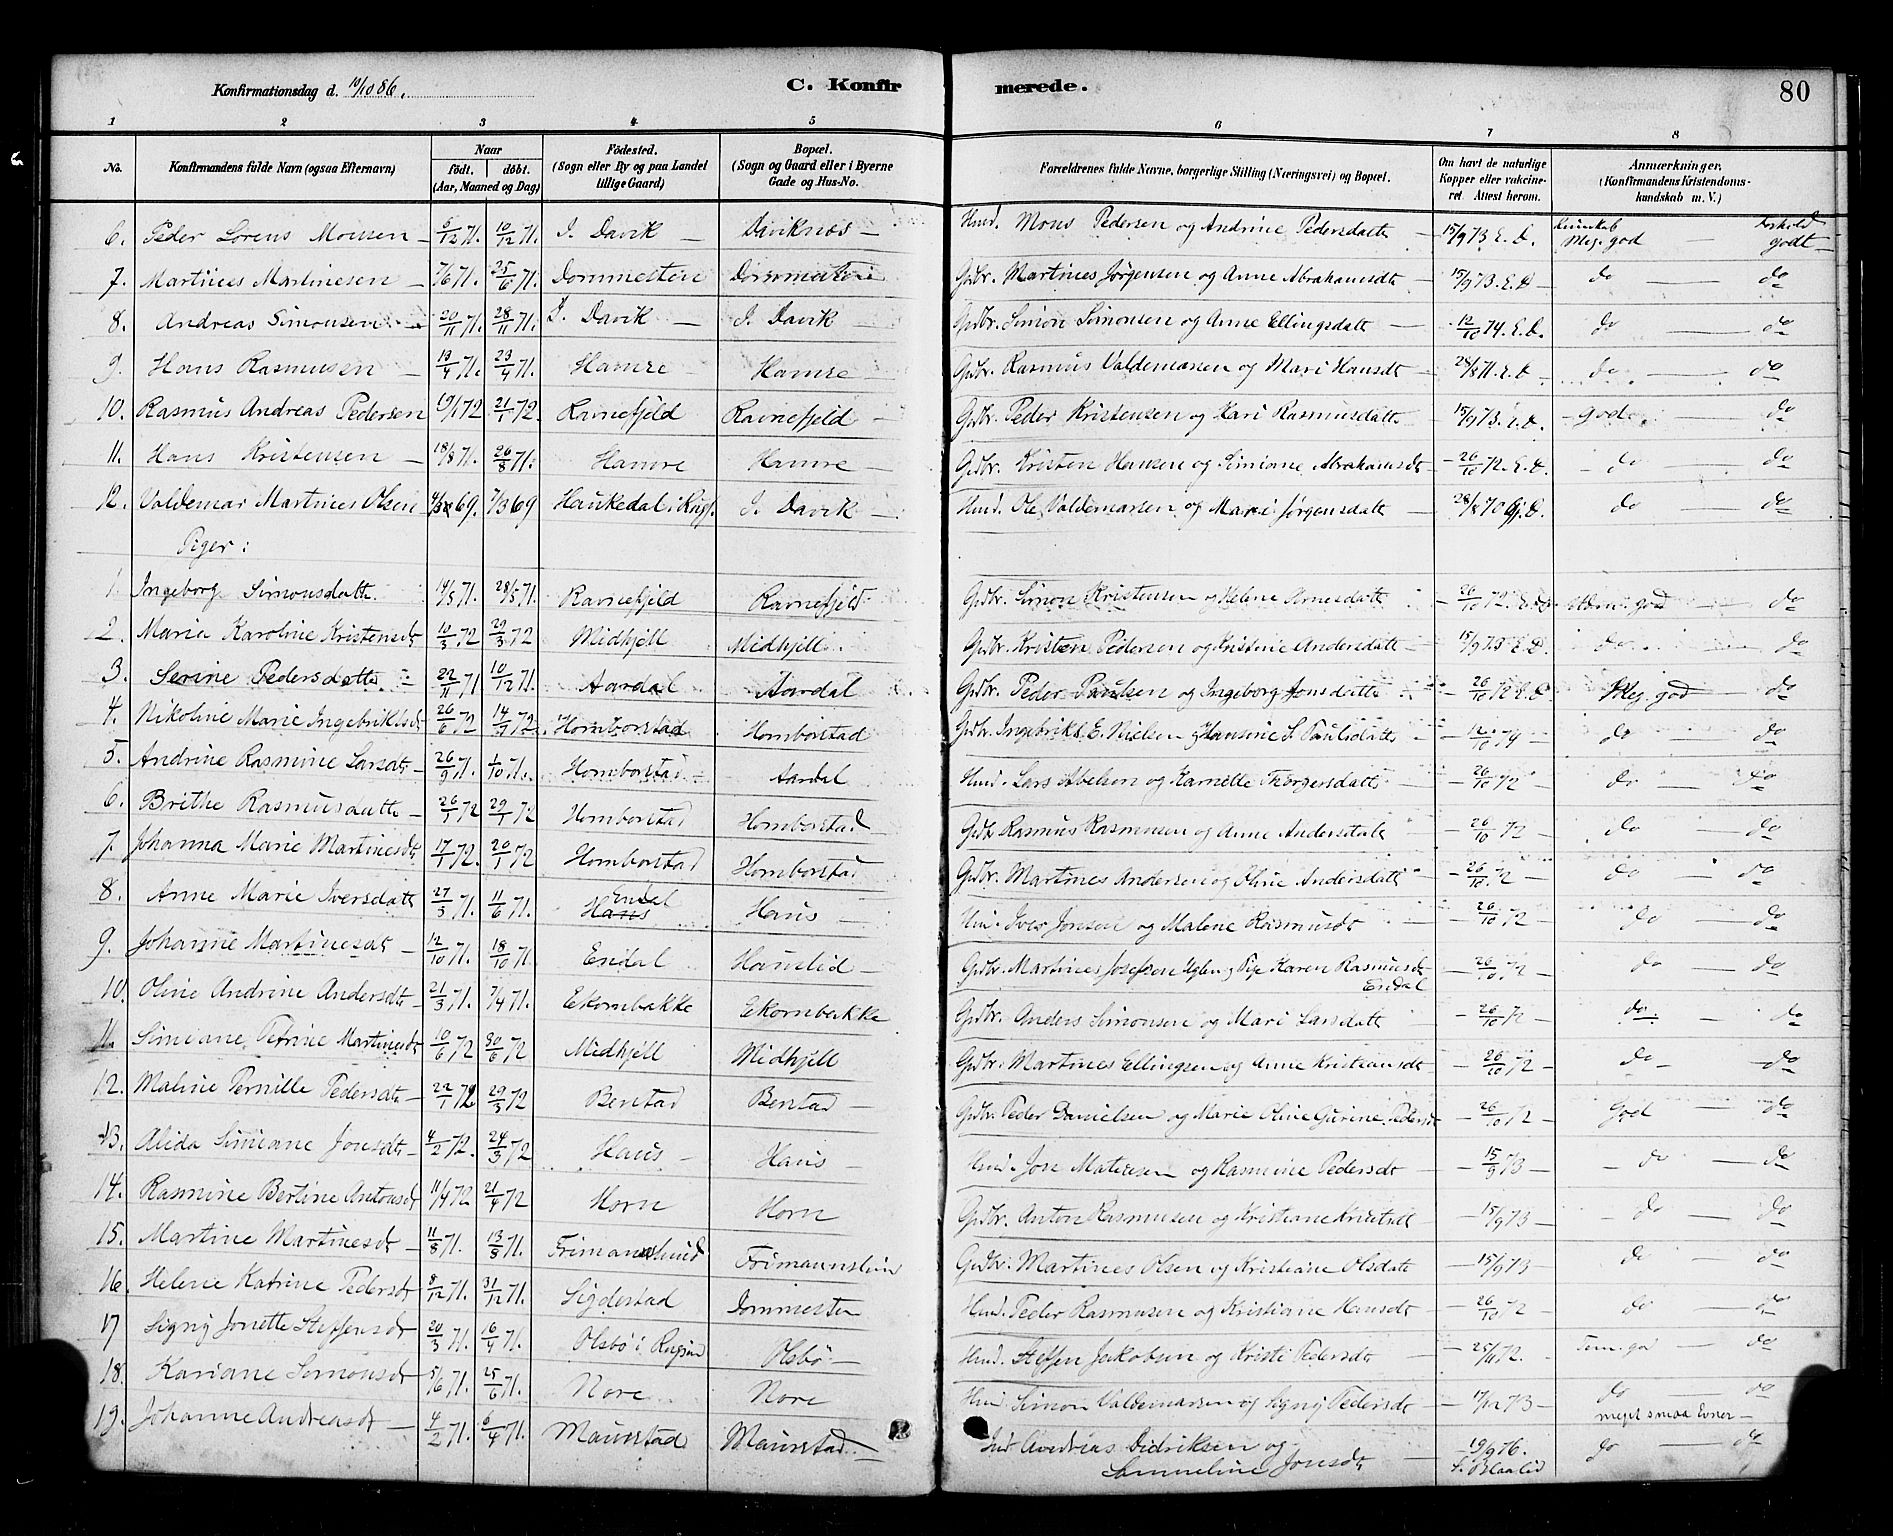 Konfirmationsdag d. 10/10 86. C. Konfirmerede. 80
1 2 3 4 5 6 7 8
No. Konfirmandens fulde Navn (ogsaa Efternavn) Naar født. døbt. (Aar, Maaned og Dag) Fødested. (Sogn eller By og paa Landet tillige Gaard) Bopæl. (Sogn og Gaard eller i Byerne Gade og Hus-No. Forældrenes fulde Navne, borgerlige Stilling (Næringsvei) og Bopæl. Om havt de naturlige Kopper eller vakcineret. Attest herom. Anmærkninger. (Konfirmandens Kristendomskundskab m. V.)
6. Peder Lorens Monsen 5/12 71. 10/12 71. I. Davik Daviknæs Husd. Mons Pedersen og Andrine Pedersdatt 15/9 73. E. D. Kundskab Meg. god Forhold godt
7. Martines Martinesen 7/6 71. 25/6 71. Dommesten Dommesten Gbr. Martines Jørgensen og Anne Abrahamsdt 15/9 73. E. D do do
8. Andreas Simonsen 20/11 71. 28/11 71. I. Davik I. Davik Gbr. Simon Simonsen og Anne Ellingsdatt 12/10 74. E. D. do do
9. Hans Rasmusen 13/4 71. 23/4 71. Hamre Hamre Gbr. Rasmus Valdemarsen og Mari Hansdt 28/8 71. E. D. do do
10. Rasmus Andreas Pedersen 19/1 72 21/1 72. Ravnefjeld Ravnefjeld Gbr. Peder Kristensen og Kari Rasmusdatt 15/9 73. E. D. god do
11. Hans Kristensen 18/8 71. 26/8 71. Hamre Hamre Gbr. Kristen Hansen og Simiane Abrahamsdt 26/10 72. E. D. do do
12. Valdemar Martines Olsen 69. 7/3 69 Haukedal i Rugs. I. Davik Husd. Ole Valdemarsen og Mari Jørgensdatt 28/8 70 do do
Piger:
1. Ingeborg Simonsdatt. 14/5 71. 28/5 71. Ravnefjeld Ravnefjeld Gbr. Simon Kristensen og Helene Arnesdatt 26/10 72. E. D. god do
2. Marie Karoline Kristensdt 10/3 72 29/3 72 Midhjell Midhjell Gbr. Kristen Pedersen og Kristine Andersdatt 15/9 73 E. D. do do
3. Serine Pedersdatt 22/11 71 10/12 71. Aardal Aardal Gbr. Peder Paulsen og Ingeborg Jonsdatt 26/10 72 E. D Meg. god do
4. Nikoline Marie Ingebriktsdt 26/6 72 14/7 72. Homborstad Homborstad Gbr. Ingebrikt E. Nielsen og Hansine S. Paulsdatt 12/10 74 do do
5. Andrine Rasmine Larsdt 26/9 71. 1/10 71. Homborstad Aardal Husd. Lars Abelsen og Karnette Thorgersdatt 26/10 72 do do
6. Brithe Rasmusdatt 26/1 72 29/1 72 Homborstad Homborstad Gbr Rasmus Rasmusen og Anne Andersdatt 26/10 72 do do
7. Johanna Marie Martinesdt 17/1 72. 20/1 72 Homborstad Homborstad Gbr. Martines Andersen og Oline Andersdatt 26/10 72 do do
8. Anne Marie Iversdatt 27/5 71. 11/6 71. Endal Haus Haus Hus. Iver Jonsen og Malene Rasmusdt 26/10 72 do do
9. Johanne Martinesdt 12/10 71. 18/10 71 Endal Haunslid Gbr. Martines Josefsen Uglen og Pige Karen Rasmusdt Endal 26/10 72 do do
10. Oline Andrine Andersdt 21/3 71. 7/4 71. Ekornbakke Ekornbakke Gbr. Anders Simonsen og Mari Larsdatt 26/10 72 do. do
11. Simiane Petrine Martinesdt 10/6 72 30/6 72 Midhjell Midhjell Gbr. Martines Ellingsen og Anne Kristiansdt 26/10 72 do do
12. Maline Pernille Pedersdt 22/1 72 29/3 72 Berstad Berstad Gbr. Peder Danielsen og Marie Oline Gurine Pedersdt 26/10 72 God do
13. Alida Simiane Jonsdt 4/2 72. 24/3 72 Haus Haus Husd. Jon Matiasen og Rasmine Pedersdt 15/9 73 do do
14. Rasmine Bertine Antonsdt 11/4 72 21/4 72 Horn Horn Gbr. Anton Rasmusen og Kristiane Kristdt 15/9 73 do do
15. Martine Martinesdt 11/8 71. 13/8 71. Frimannslund Frimannslun Gbr. Martines Olsen og Kristiane Olsdatt 15/9 73 do do
16. Helene Katrine Pedersdt 8/12 71. 31/12 71. Sigdestad Dommesten Husd. Peder Rasmusen og Kristiane Hansdt 26/10 72 do do
17 Signij Jonette Steffensdt 20/3 71. 16/4 71. Olsbø i Rugsund Olsbø Husd. Steffen Jakobsen og Kristi Pedersdt 25/11 72. Tem. god do
18. Kariane Simonsdt 5/6 71. 25/6 71. Nore Nore Husd. Simon Valdemarsen og Signij Pedersdt 17/12 73 do do
meget smaa Evner
19. Johanne Andreasdt 4/2 71. 6/4 71. Maurstad Maurstad Ind Andreas Didriksen og Samueline Jonsdt 19/9 76. do do